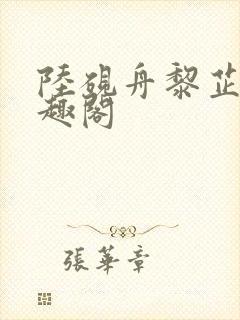 陸硯舟黎芷
趣閣
張華章